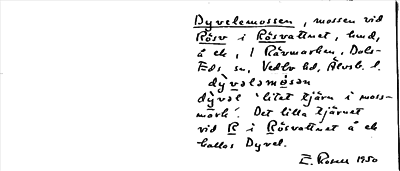 Dyvelemossen, mossen vid
Rösv i Rösvattnet, hmd,
å ek, i Rävmarken, Dals-
Eds sn, Vedbo hd, Älvsb. l.
dỳvələmòsən
dỳvəl 'litet tjärn i moss-
mark'. Det lilla tjärnet
vid R i Rösvattnet å ek
kallas Dyvel.
E. Rosell 1950